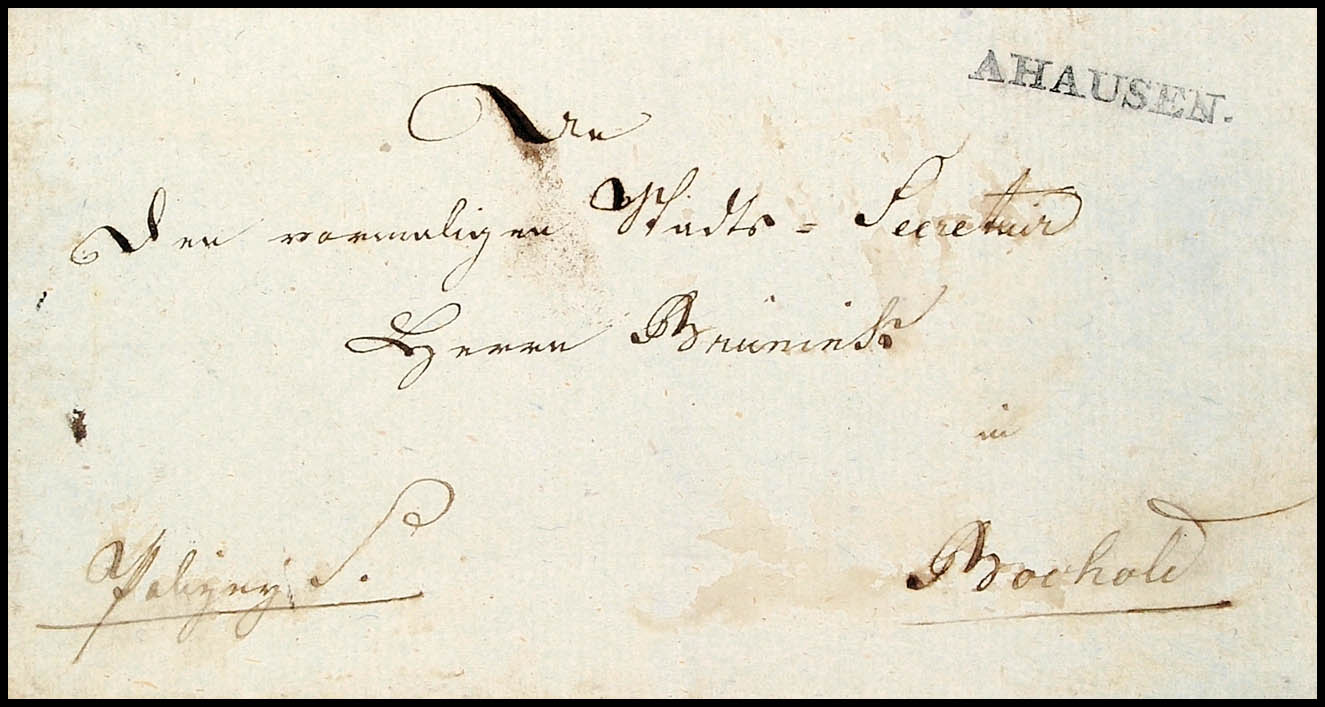 AHAUSEN.
An
Den vormaligen Stadts = Secretair
Herrn
in
Polizey S.
Bocholt